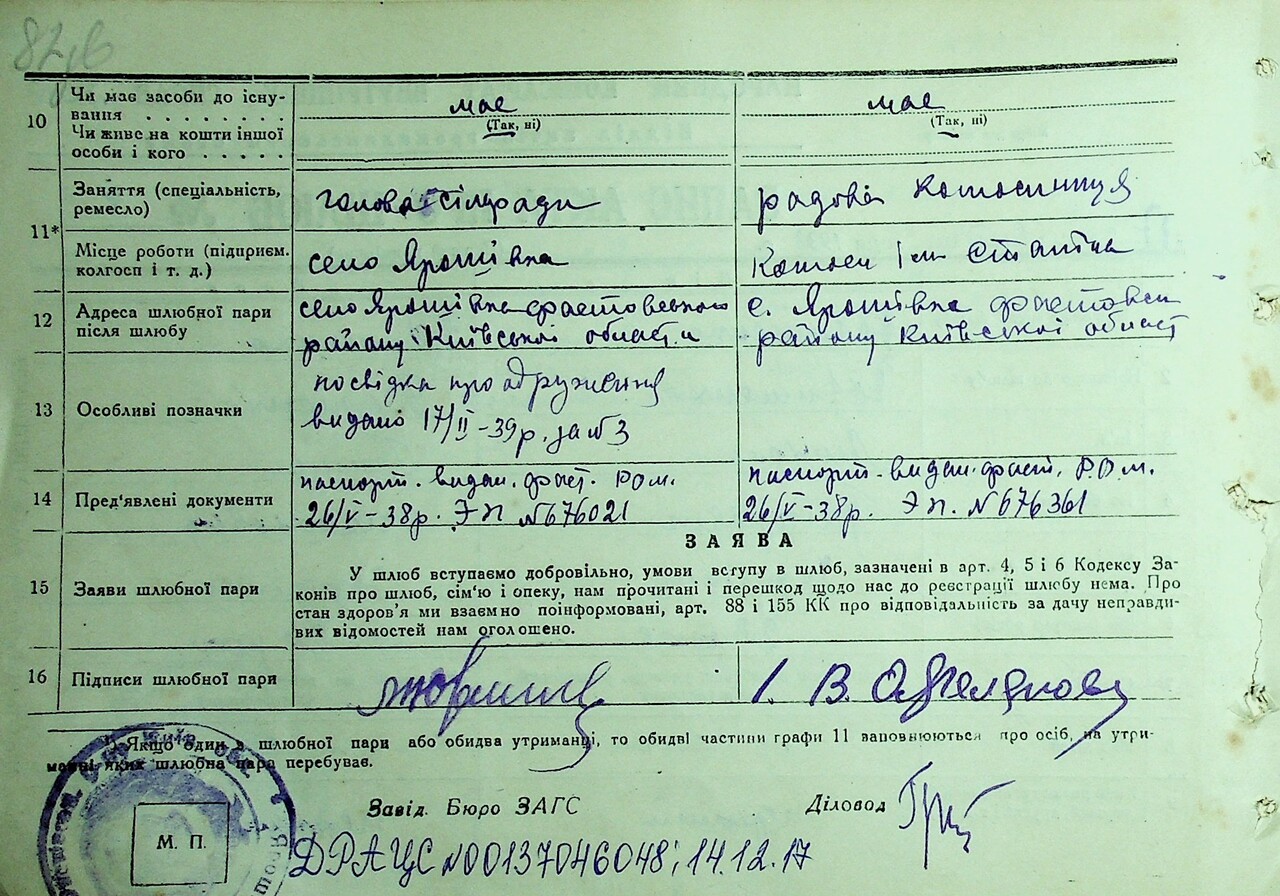 82
10
Чи має засоби до існу-
вання . . . . . . .
має
має
(Так, ні)
(Так, ні)
Чи живе на кошти іншої
особи і кого . . . . .
11*
Заняття (спеціальність,
ремесло)
голова сілради
радова
Місце роботи (підприєм.
колгосп і т. д.)
село Ярошівка
Сталіна
12
Адреса шлюбної пари
після шлюбу
село Ярошівка фастовського
району Київської области
с. Ярошівка
району Київської област
13
Особливі позначки
посвідка про одруження
видано 17/II-39р. за №3
14
Пред'явлені документи
паспорт. видан. фаст. РОм.
26/V-38р. ЭП №676021
паспорт. видан. фаст. РОм.
26/V-38р. ЭП. №676361
ЗАЯВА
15
Заяви шлюбної пари
У шлюб вступаємо добровільно, умови вступу в шлюб, зазначені в арт. 4, 5 і 6 Кодексу За-
конів про шлюб, сім'ю і опеку, нам прочитані і перешкод щодо нас до реєстрації шлюбу нема. Про
стан здоров'я ми взаємно поінформовані, арт. 88 і 155 КК про відповідальність за дачу неправди-
вих відомостей нам оголошено.
16
Підписи шлюбної пари
*) Якщо один з шлюбної пари або обидва утриманці, то обидві частини графи 11 заповнюються про осіб, на утри-
манні яких шлюбна пара перебуває.
Завід. Бюро ЗАГС
Діловод
М. П.
ДРАЦС №00137046048; 14.12.17